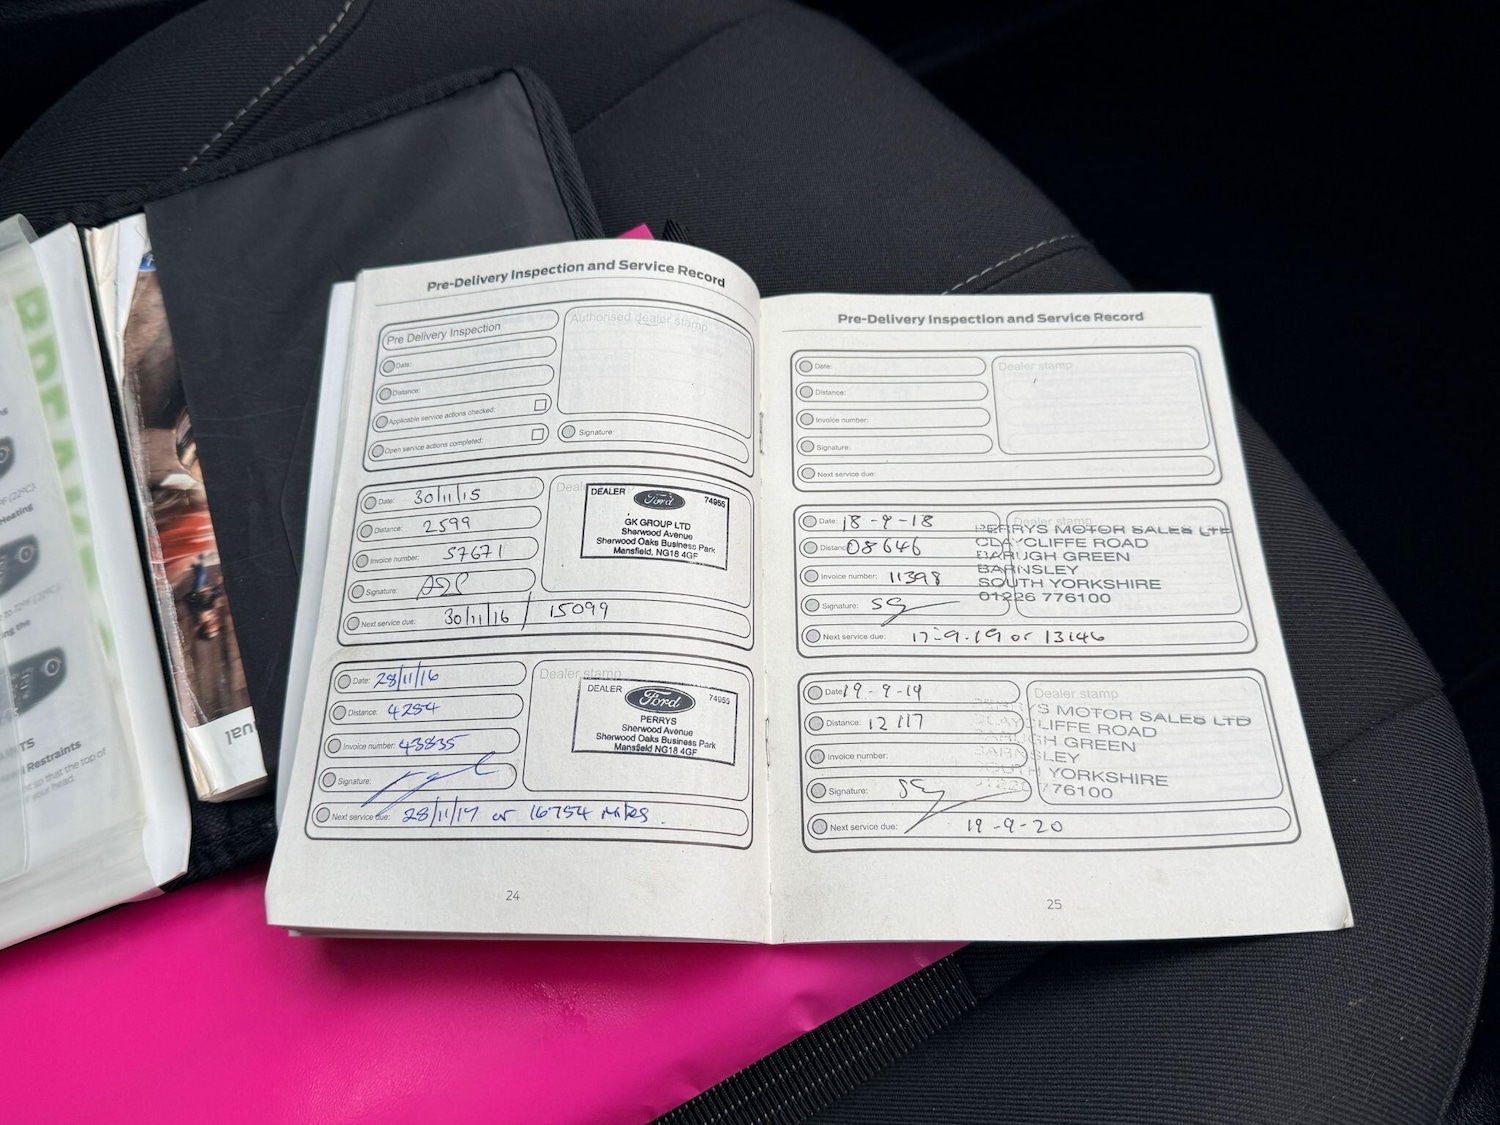 Pre-Delivery Inspection and Service Record
Pre Delivery Inspection
Authorised dealer stamp
Date:
Distance:
Applicable service actions checked:
Open service actions completed:
Signature:
Date: 30/11/15
Distance: 2599
Invoice number: 57671
Signature:
Next service due: 30/11/16 / 15099
Dealer
DEALER Ford 74955
GK GROUP LTD
Sherwood Avenue
Sherwood Oaks Business Park
Mansfield, NG18 4GF
Date: 28/11/16
Distance: 4254
Invoice number: 43835
Signature:
Next service due: 28/11/17 or 16754 miles.
Dealer stamp
DEALER Ford 74955
PERRYS
Sherwood Avenue
Sherwood Oaks Business Park
Mansfield NG18 4GF
24
Pre-Delivery Inspection and Service Record
Date:
Distance:
Invoice number:
Signature:
Next service due:
Dealer stamp
Date: 18-9-18
Distance: 08646
Invoice number: 11398
Signature:
Next service due: 17-9-19 or 13146
Dealer stamp
PERRYS MOTOR SALES LTD
CLAYCLIFFE ROAD
BARUGH GREEN
BARNSLEY
SOUTH YORKSHIRE
01226 776100
Date: 19-9-19
Distance: 12117
Invoice number:
Signature:
Next service due: 19-9-20
Dealer stamp
YS MOTOR SALES LTD
CLAYCLIFFE ROAD
GH GREEN
BARNSLEY
SOUTH YORKSHIRE
776100
25
Restraints
so that the top of
your head.
Heating